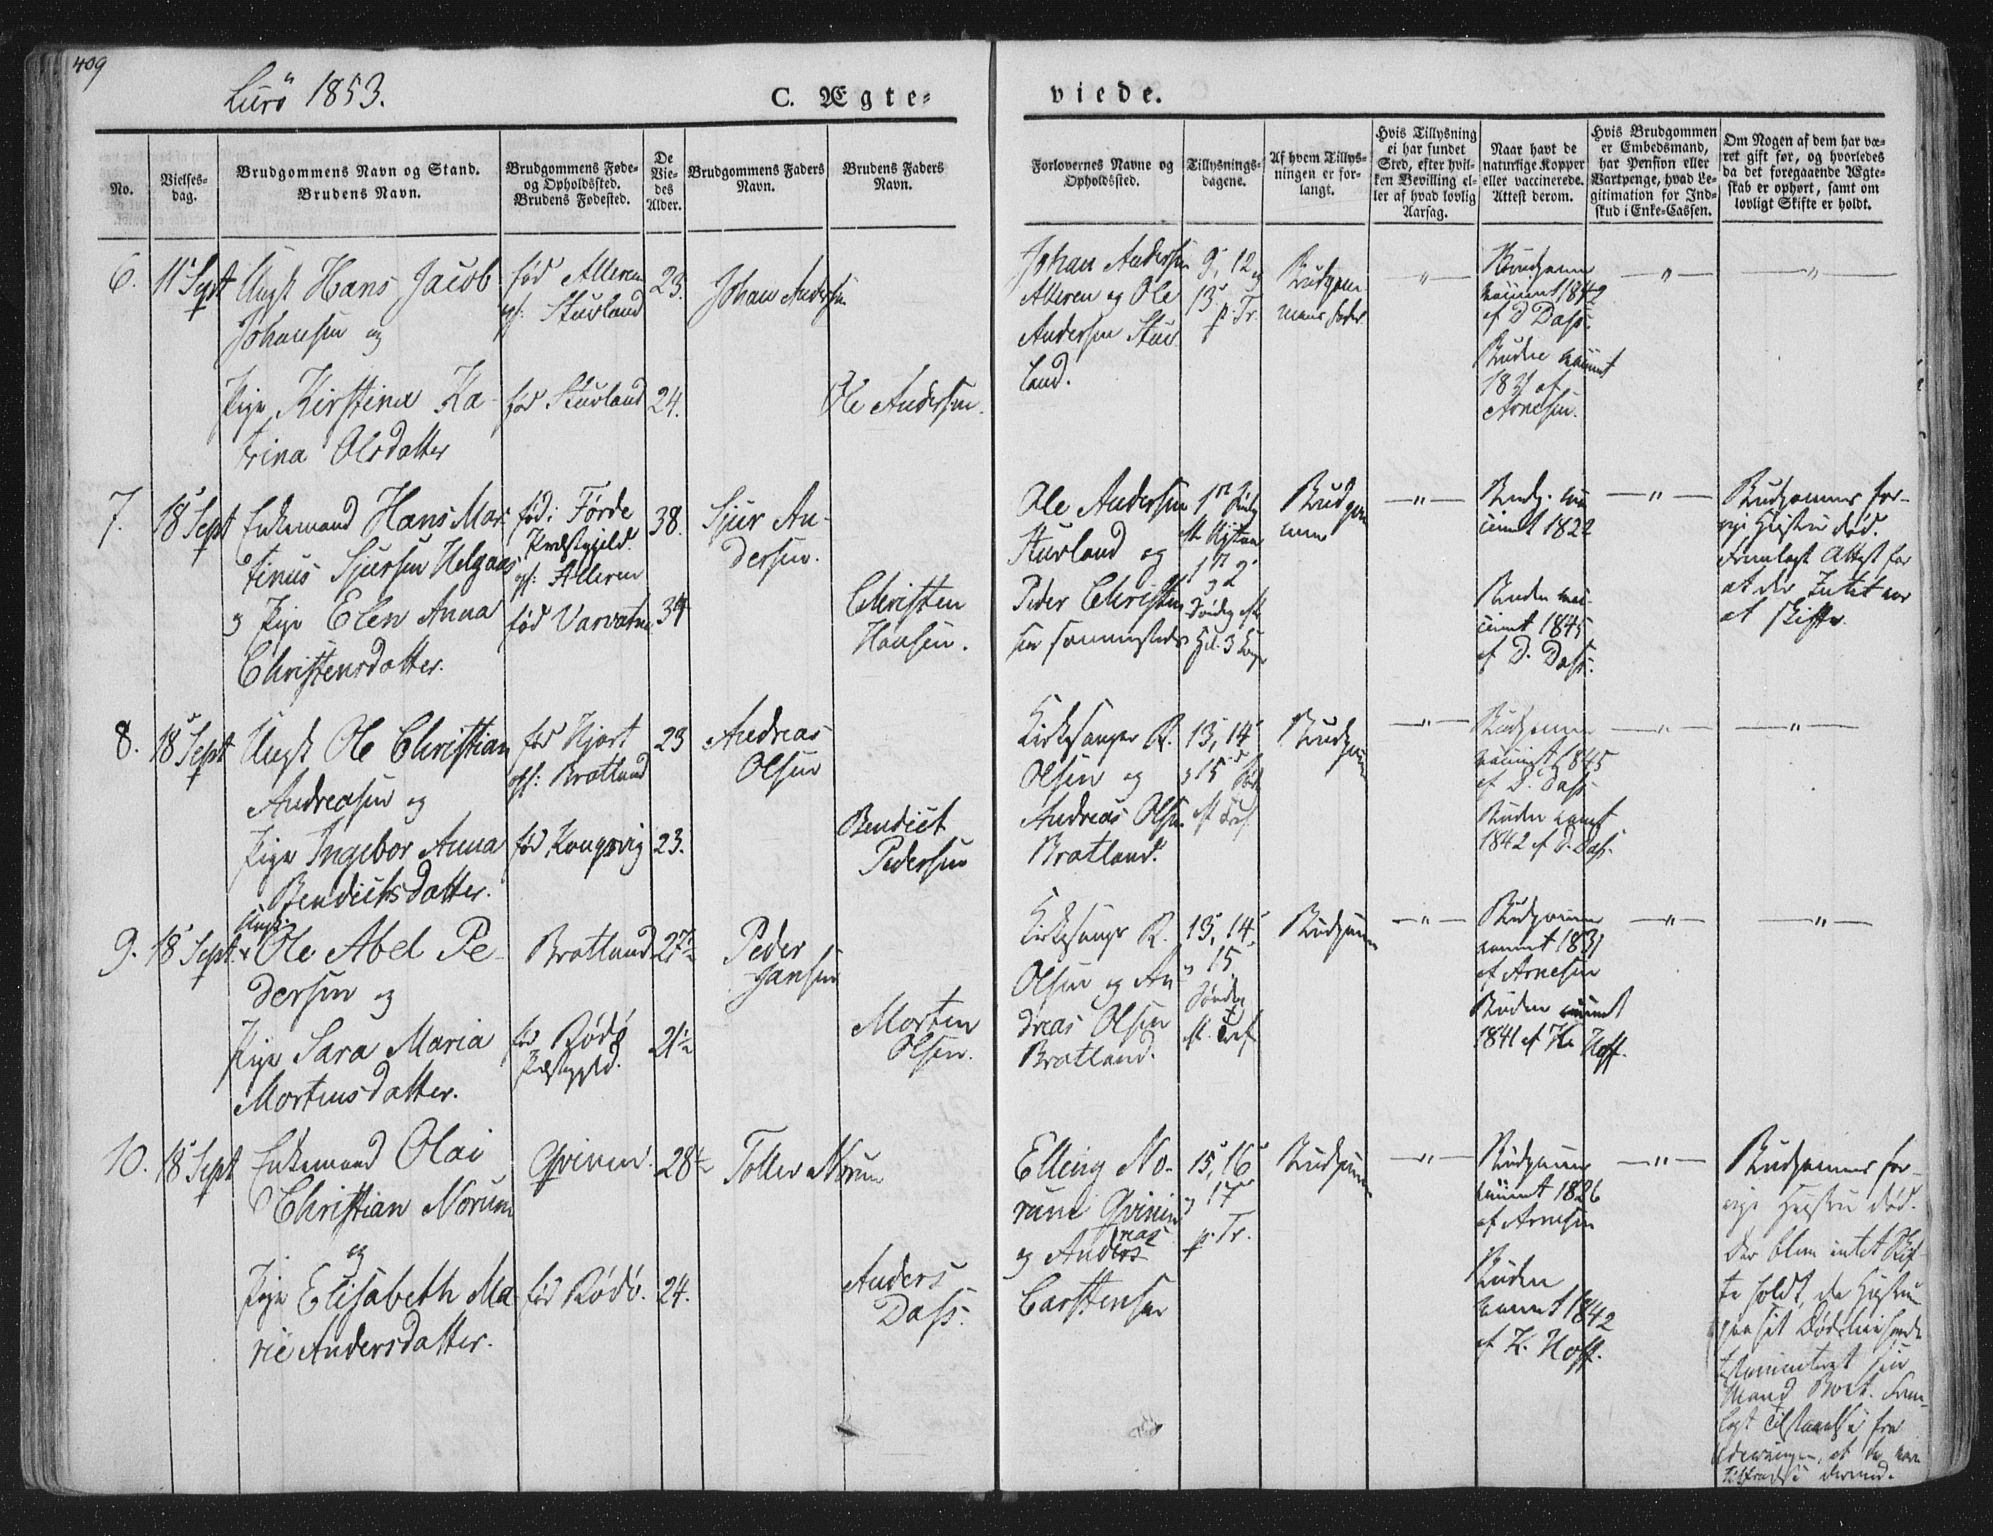 409
Lurö 1853.
C. Ægte=
viede.
No.
Vielses-
dag.
Brudgommens Navn og Stand.
Brudens Navn.
Brudgommens Føde-
og Opholdssted.
Brudens Fødested.
De
Vie-
des
Alder.
Brudgommens Faders
Navn.
Brudens Faders
Navn.
Forlovernes Navne og
Opholdssted.
Tillysnings-
dagene.
Af hvem Tillys-
ningen er for-
langt.
Hvis Tillysning
ei har fundet
Sted, efter hvil-
ken Bevilling el-
ler af hvad lovlig
Aarsag.
Naar havt de
naturlige Kopper
eller vaccinerede.
Attest derom.
Hvis Brudgommen
er Embedsmand,
har Pension eller
Vartpenge, hvad Le-
gitimation for Ind-
skud i Enke-Cassen.
Om Nogen af dem har væ-
ret gift før, og hvorledes
da det foregaaende Ægte-
skab er ophørt, samt om
lovligt Skifte er holdt.
6.
11 Sept
Ungk Hans Jacob
Johansen og
Pige Kirstina Ka-
trina Olsdatter
fød Alleren
oph: Sturland
fød Sturland
23.
24.
Johan Andersen
Ole Andersen.
Johan Andersen
Alleren og Ole
Andersen Stur
land.
9, 12 og
13 p. Tr.
Brudgom-
mens Fader
Brudgommen
vaccineret 1842
af D Dass.
Bruden vaccineret
1831 af
Arnesen.
7.
18 Sept
Enkemand Hans Mar-
tinus Sjursen Helgaas
og Pige Elen Anna
Christensdatter.
fød i Førde
Præstegjeld.
oph: Alleren
fød Varvatne
38.
34
Sjur An-
dersen.
Christen
Hansen.
Ole Andersen
Sturland og
Peder Christen
sen sammesteds
Brudgom
men
Brudg. vac-
cineret 1822
Bruden vac-
cineret 1845
af D. Dass.
Brudgommens for-
rige Hustru død.
Fremlagt Attest for
at der Intet var
at skifte.
8.
18 Sept
Ungk Ole Christian
Andreasen og
Pige Ingebor Anna
Bendictsdatter.
fød Hjort
oph: Bratland
fød Kongsvig
23
23.
Andreas
Olsen
Bendict
Pedersen
Kirkesanger R.
Olsen og
Andreas Olsen
Bratland.
13, 14
og 15 Sønd
eft Tref.
Brudgom
Brudgommen
vaccineret 1845
af D. Dass
Bruden vaccineret
1842 af D. Dass.
9.
18 Sept.
Ungk.
Ole Abel Pe-
dersen og
Pige Sara Maria
Mortensdatter.
Bratland
fød Rødø
Præstegjeld.
27½
21½
Peder
Jansen
Morten
Olsen.
Kirkesanger R.
Olsen og An
dreas Olsen
Bratland.
13, 14,
og 15
Søndag
eft. Tref
Brudgommen
Brudgommen
vaccineret 1831
af Arnesen
Bruden vaccineret
1841 af K. Hoff.
10.
18 Sept
Enkemand Olai
Christian Norum
og
Pige Elisabeth Ma
rie Andersdatter.
Qvinen.
fød Rödö.
28½
24.
Toller Norum
Anders
Dass.
Elling No-
rum Qvinen
og Andreas
Carstensen
15, 16
og 17
p. Tr.
Brudgommen
Brudgommen
vaccineret 1826
af Arnesen
Bruden
vaccineret 1842
af K. Hoff.
Brudgommens for-
rige Hustru død.
Der blev intet Skif-
te holdt, da Hustru
paa sit Dødsleie havde
testamenteret sin
Mand Boet. Frem-
lagt Tilstaaelse fra
Udarvingen, at de vare
tilfreds dermed.